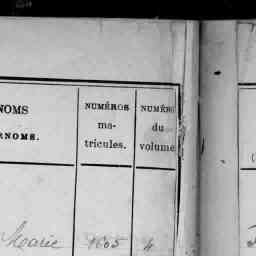 NOMS
RNOMS.
NUMÉROS
ma-
tricules.
NUMÉR
du
volume
Marie 1605 4